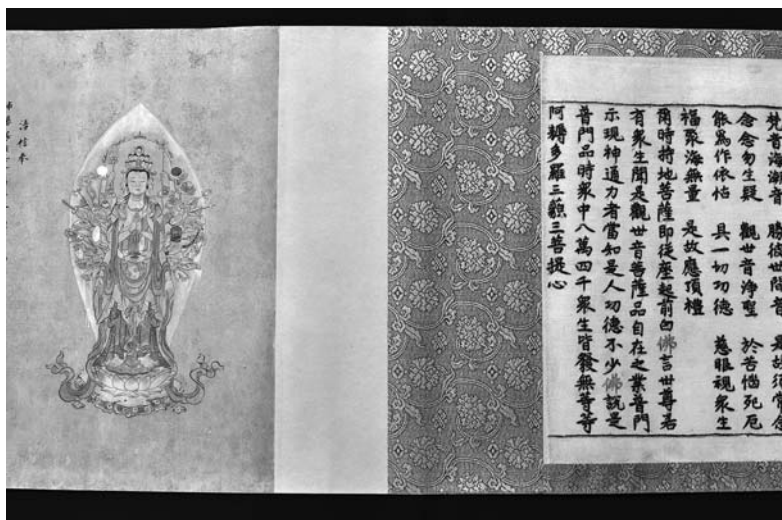 梵音海潮音 勝彼世間音 是故須常念
念念勿生疑 觀世音淨聖 於苦惱死厄
能爲作依怙 具一切功德 慈眼視衆生
福聚海無量 是故應頂禮
爾時持地菩薩即從座起前白佛言世尊若
有衆生聞是觀世音菩薩品自在之業普門
示現神通力者當知是人功德不少佛說是
普門品時衆中八萬四千衆生皆發無等等
阿耨多羅三藐三菩提心